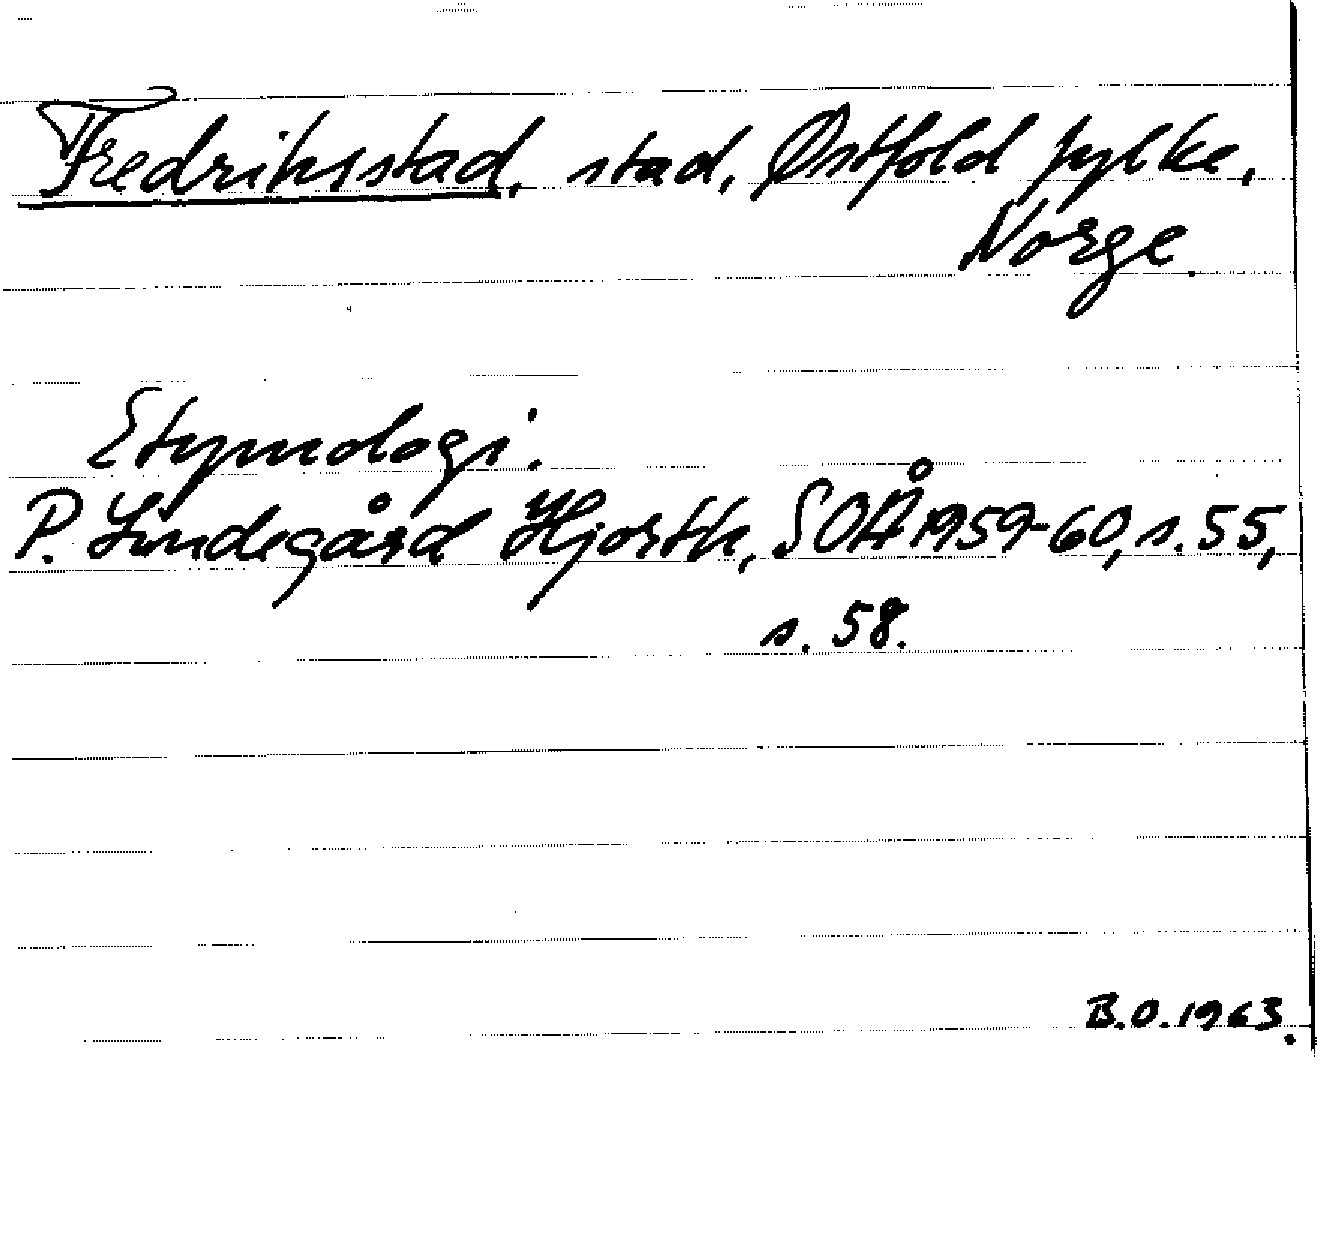 Fredriksstad, stad, Østfold fylke,
Norge.
Etymologi.
P. Lindegård Hjorth, SOÅ 1959-60, s. 55,
s. 58.
B.O. 1963.